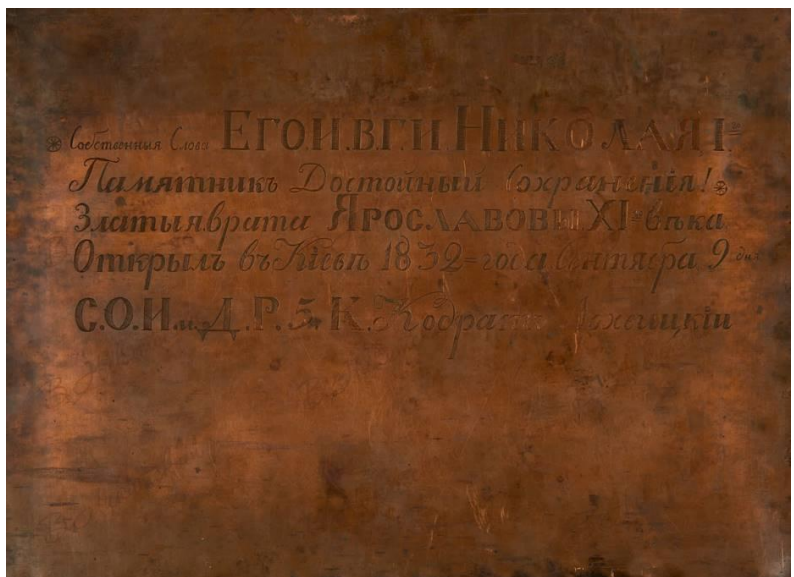 Собственныя Слова ЕГО И. В. Г. И НИКОЛАЯ I-
Памятникъ Достойный Сохраненія!
Златыя врата ЯРОСЛАВОВЫ XI- вѣка
Открылъ въ Кіевѣ 1832- года Сентября 9- дня
С. О. И. и Д. Р. 3й К. Кодратъ Лохвицкій